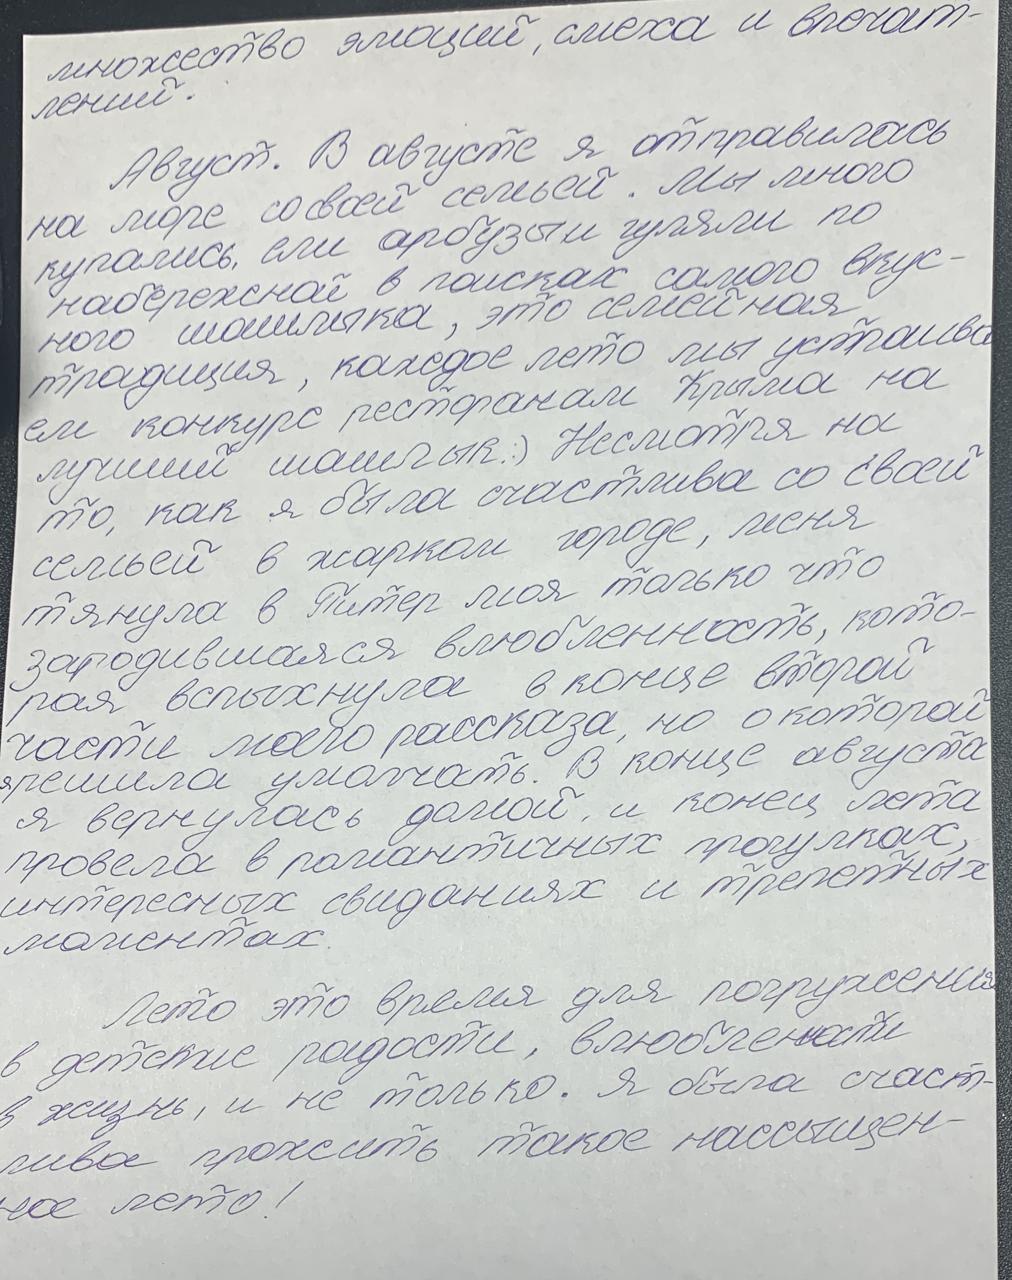 множество эмоций, смеха и впечат-
лений.
Август. В августе я отправилась
на море со своей семьей. Мы много
купались, ели арбузы и гуляли по
набережной в поисках самого вкус-
ного шашлыка, это семейная
традиция, каждое лето мы устраива
ем конкурс ресторанам Крыма на
лучший шашлык:) Несмотря на
то, как я была счастлива со своей
семьей в жарком городе, меня
тянула в Питер моя только что
зародившаяся влюбленность, кото-
рая вспыхнула в конце второй
части моего рассказа, но о которой
я решила умолчать. В конце августа
я вернулась домой, и конец лета
провела в романтичных прогулках,
интересных свиданиях и трепетных
моментах.
Лето это время для погружения
в детские радости, влюбленности
в жизнь, и не только. Я была счаст-
лива прожить такое нассыщен-
ное лето!